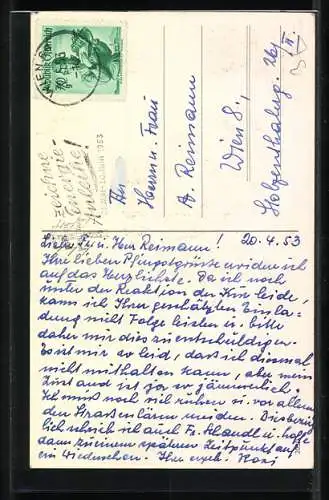 WIEN
Republik Österreich
zeichne
Energie-
Anleihe!
1953
An
Herrn u. Frau
A. Reimann
Wien 8.,
II
Liebe Fr. u. Herr Reimann! 20.4.53
Ihre lieben Pfingstgrüsse erwidere ich
auf das Herzlichste. Da ich noch
unter der Reaktion der Kur leide,
kann ich Ihrer geschätzten Einla-
dung nicht Folge leisten u. bitte
daher mir dies zu entschuldigen.
Es ist mir so leid, dass ich diesmal
nicht mithalten kann, aber mein
Zustand ist gar so jämmerlich.
Ich muss noch viel ruhen u. vor allem
den Strassenlärm meiden. Diesbezüg
lich schrieb ich auch Fr. Schandl u. hoffe
dann zu einem späteren Zeitpunkt auf
ein Wiedersehen. Ihre ergeb. Resi